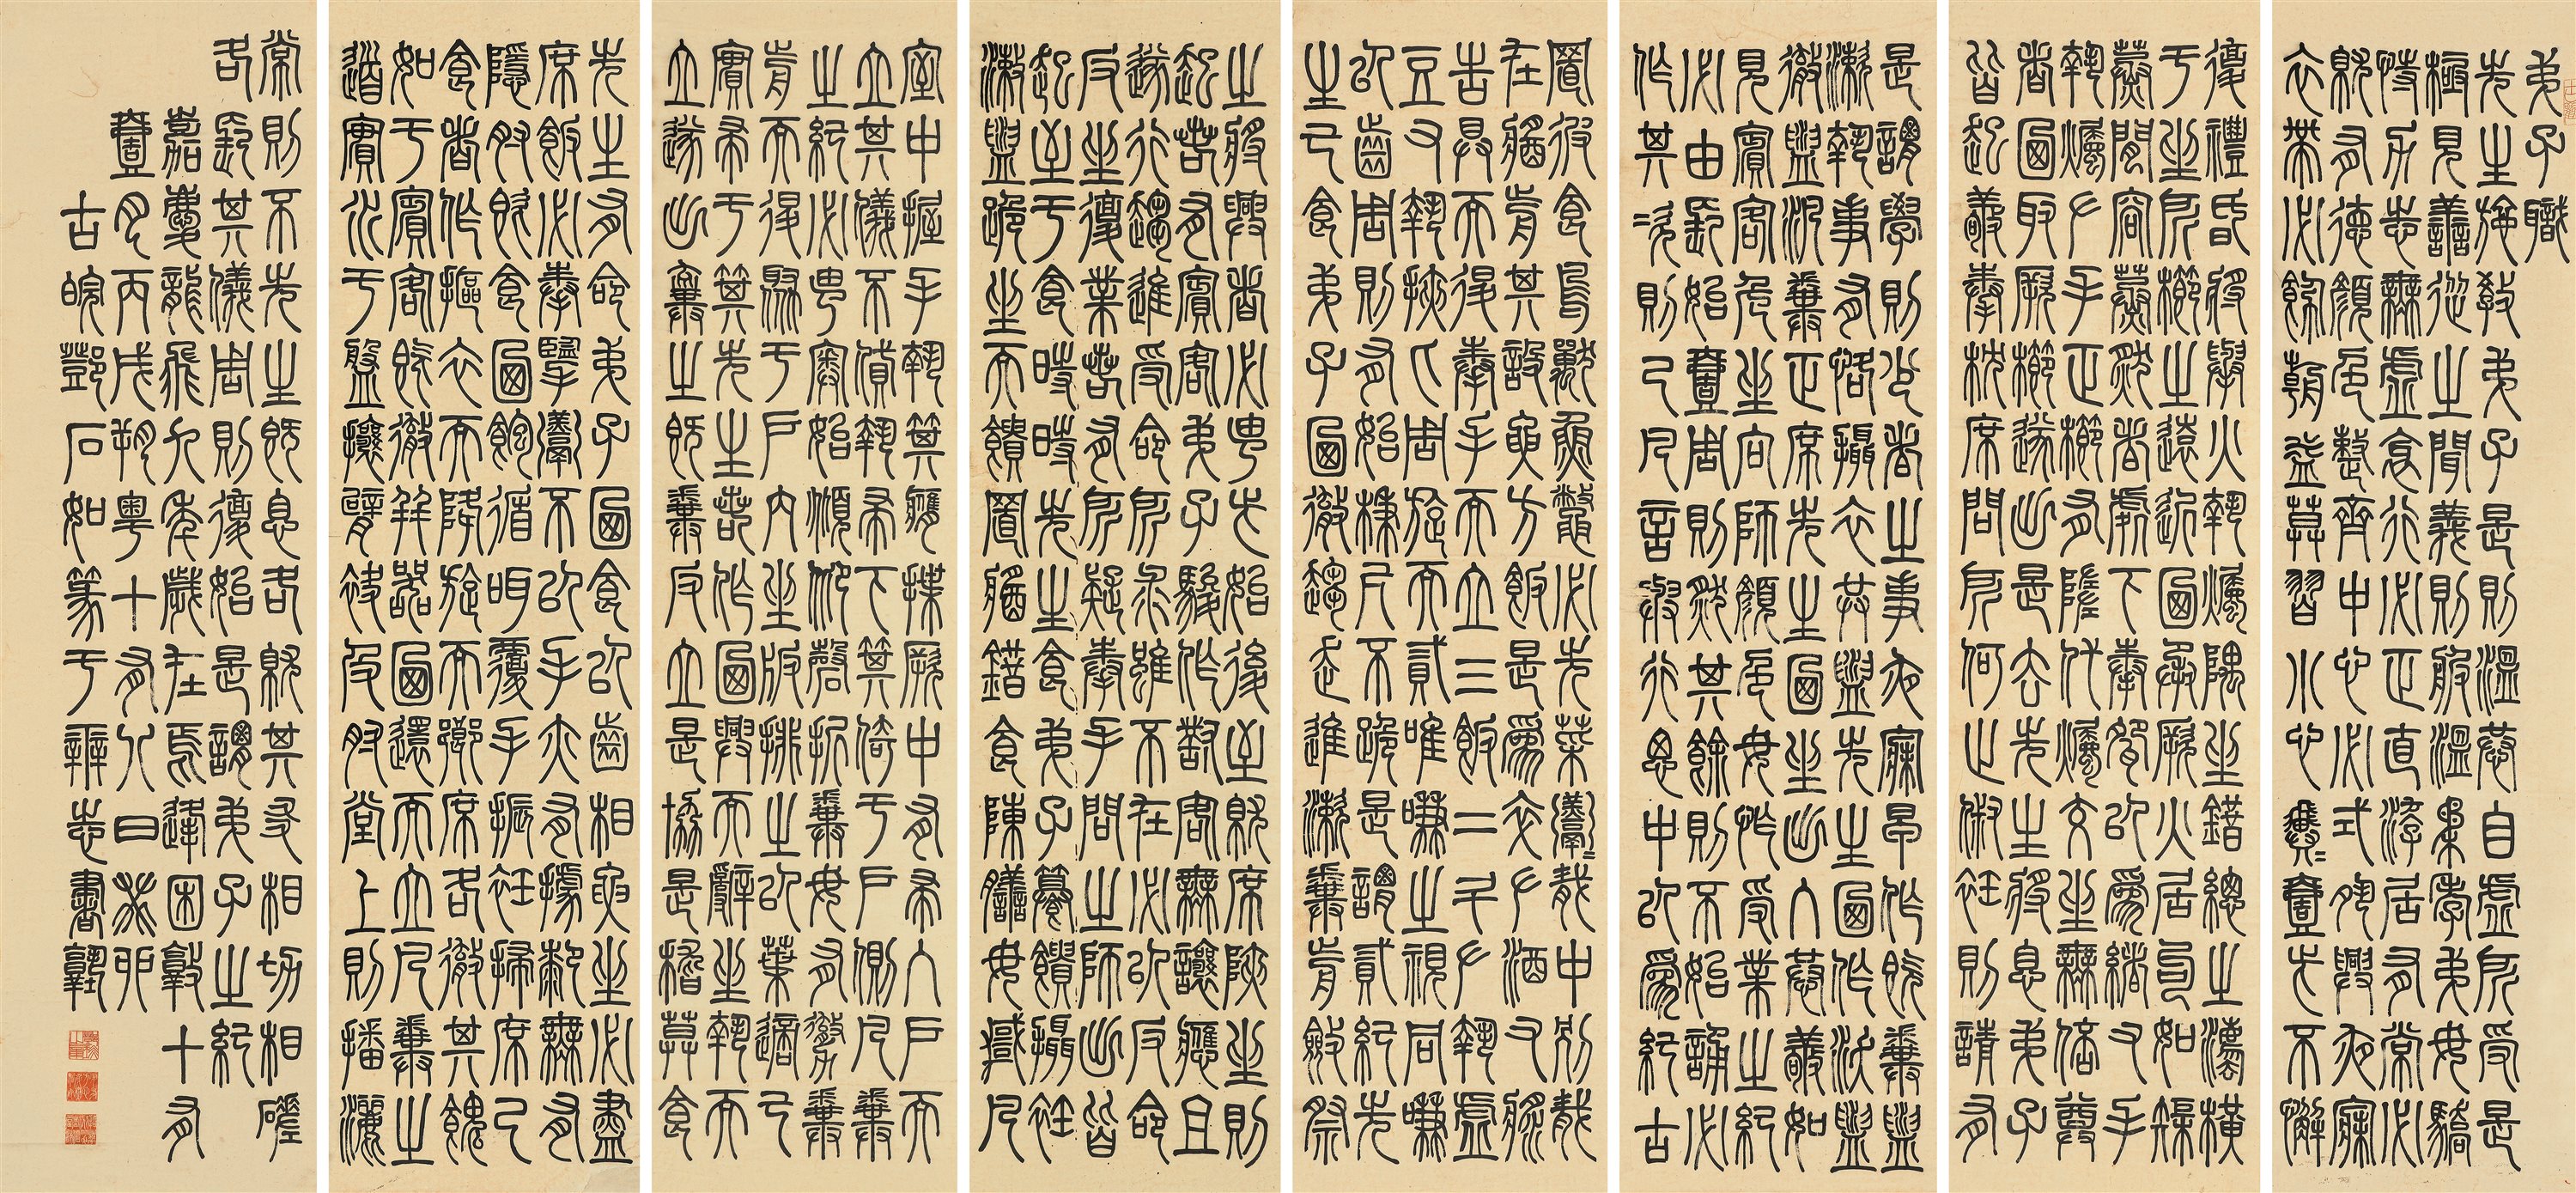 弟子職
先生施教弟子是則溫恭自虛所受是
極見善從之聞義則服溫柔孝弟毋驕
恃力志無虛衺行必正直游居有常必
就有德顏色整齊中心必式夙興夜寐
衣帶必飭朝益莫習小心翼=壹此不懈
復禮昏將舉火執燭隅坐錯總之灋橫
于坐所櫛之遠近乃承厥火居句如矩
蒸閒容蒸然者處下奉椀以爲緒又手
執燭ナ手正櫛有墮代燭交坐無倍尊
者乃取厥櫛遂出是去先生將息弟子
皆起敬奉枕席問所何止俶衽則請有
是謂學則少者之事夜寐蚤作既糞盥
漱執事有恪攝衣共盥先生乃作沃盥
徹盥汎糞正席先生乃坐出入恭敬如
見賓客危坐向師顏色毋怍受業之紀
必由長始壹周則然其餘則不始誦必
作其次則已凡言與行思中以爲紀古
置彼食鳥獸魚鼈必先菜羹=胾中別胾
在醬前其設要方飯是爲卒ナ酒又漿
告具而退奉手而立三飯二斗ナ執虛
豆又執挾匕周旋而貳唯嗛之視同嗛
以齒周則有始柄尺不跪是謂貳紀先
生已食弟子乃徹趨走進漱糞前斂祭
之將興者必由此始後至就席陝坐則
起若有賓客弟子駿作對客無讓應且
遂行趨進受命所求雖不在必以反命
反坐復業若有所疑奉手問之師出皆
起至于食時時先生食弟子饌饋攝衽
漱盥跪坐而饋置醬錯食陳膳毋悖凡
室中握手執箕膺揲厥中有帚入戶而
立其儀不貣執帚下箕倚于戶側凡糞
之紀必由奧始俯仰磬折糞毋有徹糞
前而退聚于戶內坐板排之以葉適己
實帚于箕先生若作乃興而辭坐執而
立遂出棄之既糞反立是協是稽莫食
先生有命弟子乃食以齒相要坐必盡
席飯必奉擥羹不以手亦有據厀無有
隱肘既食乃飽循咡覆手振衽掃席已
食者作摳衣而降旋而鄉席各徹其餽
如于賓客既徹幷器乃還而立凡糞之
道實水于盤攘臂袂及肘堂上則播灑
常則不先生既息各就其友相切相磋
各長其儀周則復始是謂弟子之紀
嘉慶龍飛九年歲在焉逢困敦十有
壹月丙戌朔粵十有八日癸卯
古皖鄧石如篆于辨志書塾